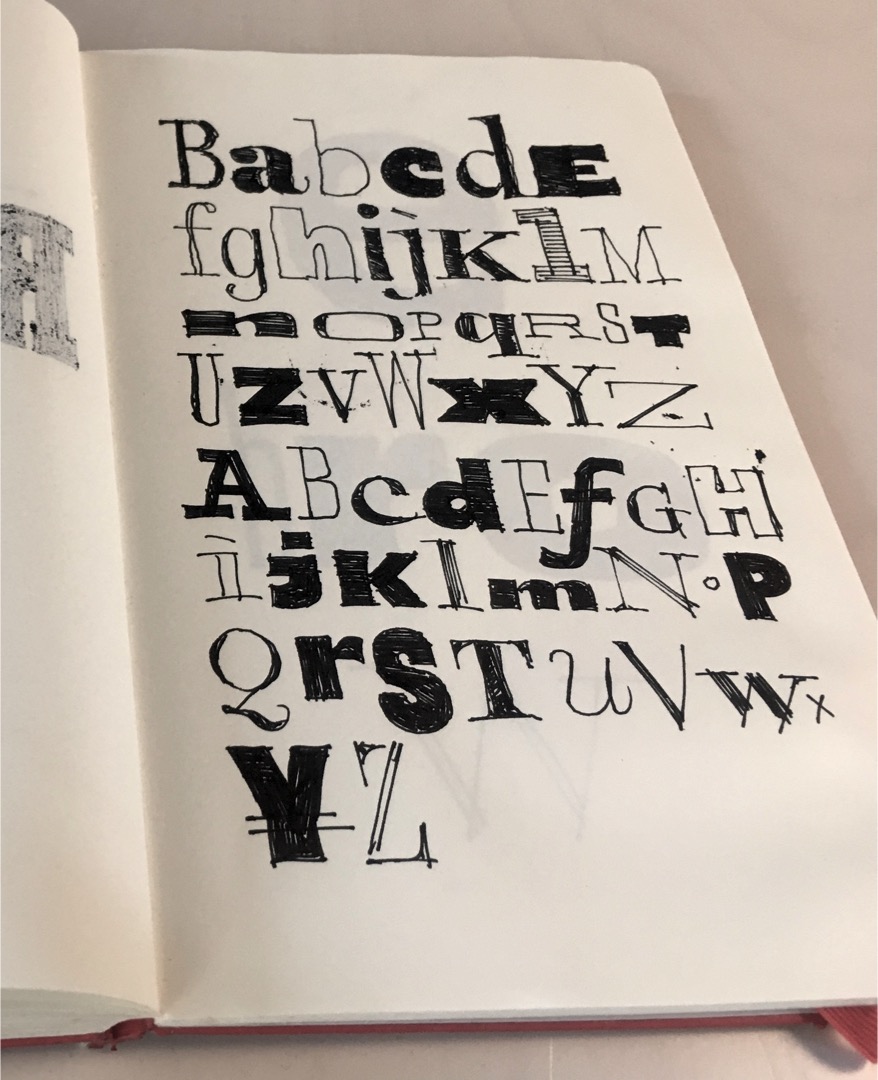 BabcdE
fghijKlM
nOPqRST
UZVWXYZ
ABcdEfGH
ijKlmN°P
QrSTUVWx
YZ
H